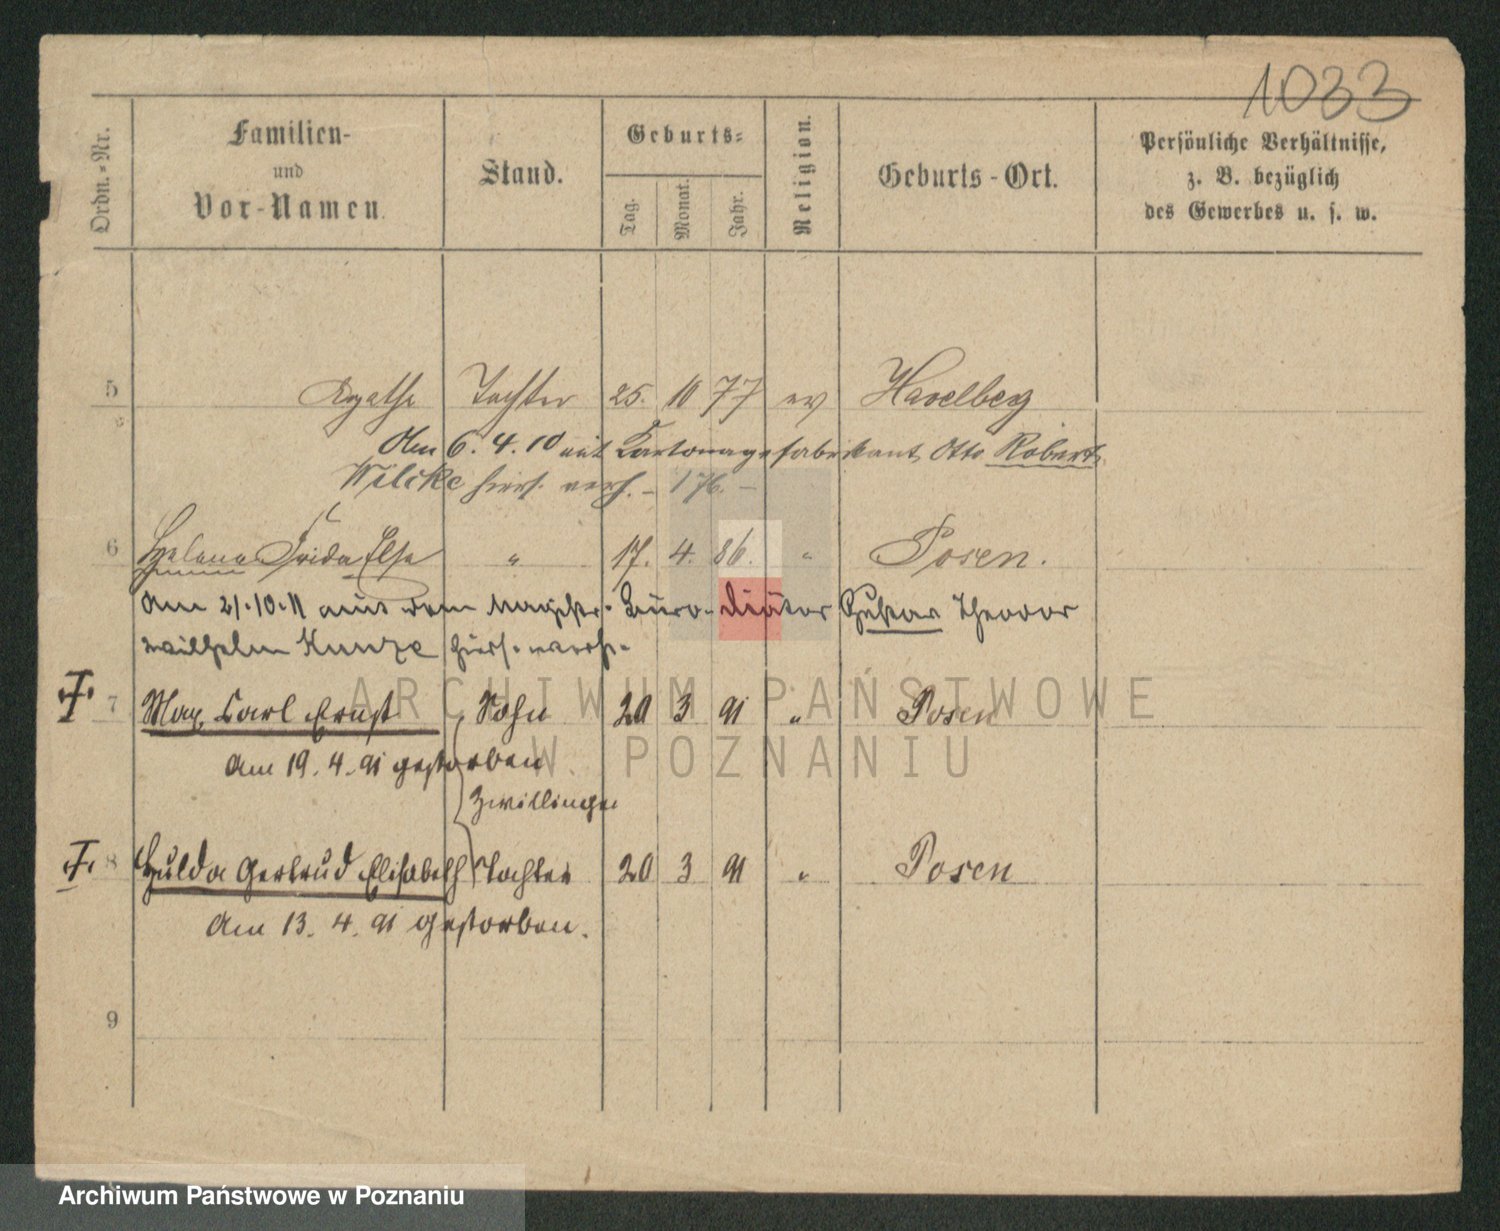 1033
Ordn.-Nr. Familien- und Vor-Namen. Stand. Geburts- Tag. Monat. Jahr. Religion. Geburts-Ort. Persönliche Verhältnisse, z. B. bezüglich des Gewerbes u. s. w.
5 Agathe Tochter 25. 10 77 ev Havelberg
Am 6. 4. 10 mit Kartonagefabrikant Otto Robert
Wilcke hiers. verh. - 176. -
6 Helene Frida Else " 17. 4. 86. " Posen.
Am 21.10.11 mit dem Magistr. Büro-Diätar Gustav Theodor
Wilhelm Kunze hiers. verh.
7 Max Carl Ernst Sohn 20 3 91 " Posen
Am 19. 4. 91 gestorben
Zwillinge
8 Hulda Gertrud Elisabeth Tochter 20 3 91 " Posen
Am 13. 4. 91 gestorben.
9
ARCHIWUM PAŃSTWOWE
W POZNANIU
Archiwum Państwowe w Poznaniu